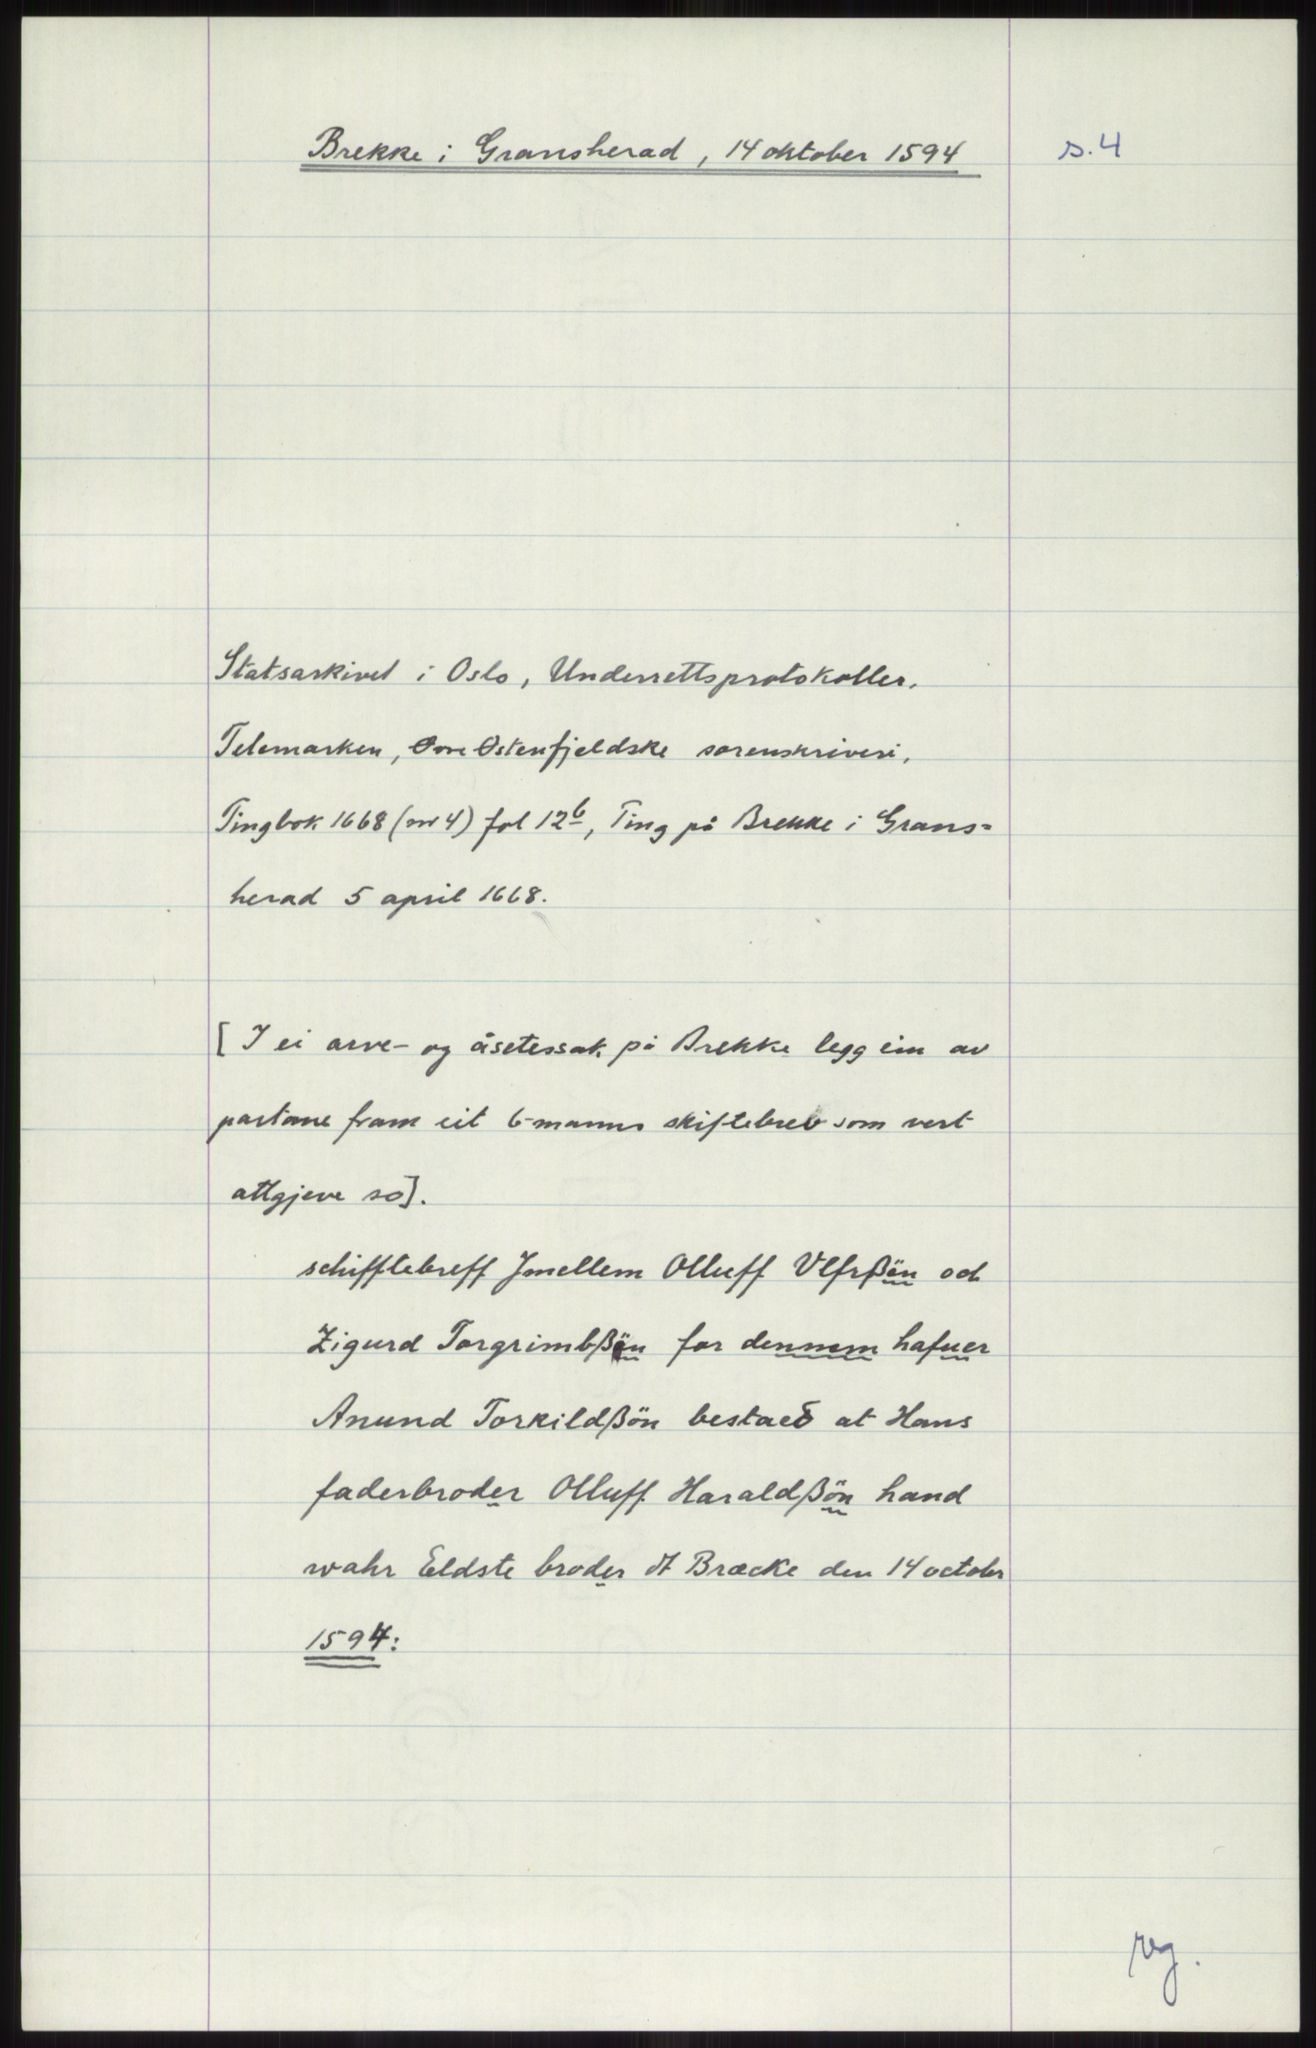 Brekke i Gransherad, 14 oktober 1594
s. 4
Statsarkivet i Oslo, Underrettsprotokoller,
Telemarken, Øvre Østenfjeldske sorenskriveri,
Tingbok 1668 (nr 4) fol 12b, Ting på Brekke i Grans=
herad 5 april 1668.
[I ei arve- og åsetessak på Brekke legg ein av
partane fram eit 6-manns skiftebrev som vert
attgjeve so].
schifftebreff Jmellem Olluff Vlfsßön och
Zigurd Torgrimbßön for dennem hafuer
Anund Torkildßön bestaeð at Hans
faderbroder Olluff Haraldßön hand
wahr Eldste broder At Bræcke den 14 octobr
1594:
reg.